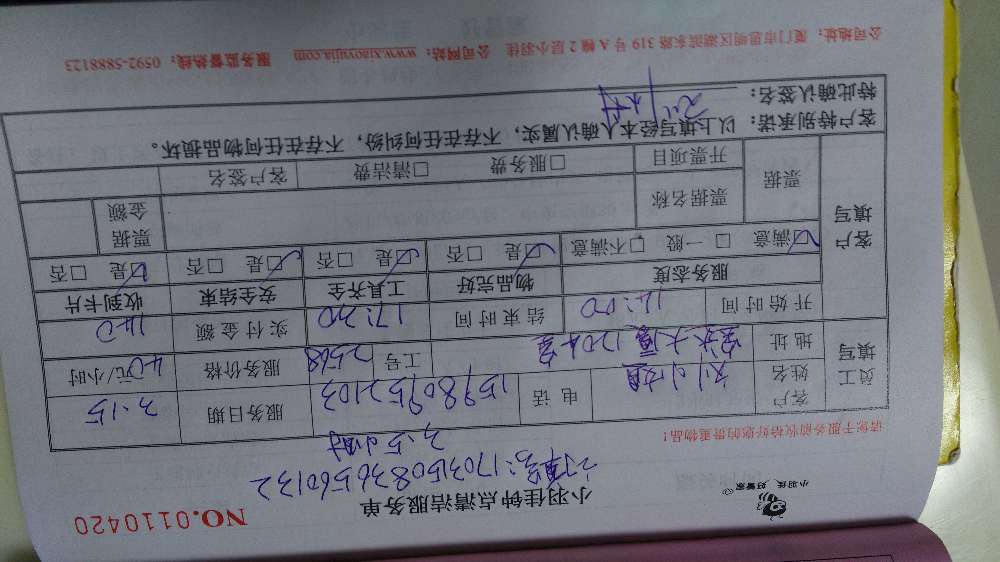 小羽佳 好管家
小羽佳钟点清洁服务单
NO.0110420
订单号:17031508365660132
3.5小时
请您于服务前收拾好您的贵重物品!
员工填写 客户姓名 刘小姐 电话 15980952103 服务日期 3.15
地址 大厦1204室 工号 2568 服务价格 40元/小时
开始时间 14:00 结束时间 17:30 实付金额 140
客户填写 服务态度 物品完好 工具齐全 安全结束 收到卡片
☑满意 □一般 □不满意 ☑是 □否 ☑是 □否 ☑是 □否 ☑是 □否
票据 票据名称 票据金额
开票项目 □服务费 □清洁费 客户签名
客户特别承诺:以上填写经本人确认属实,不存在任何纠纷,不存在任何物品损坏。
特此确认签名:
公司地址:厦门市思明区湖滨东路319号A幢2层小羽佳 公司网站:www.xiaoyujia.com 服务监督热线:0592-5888123